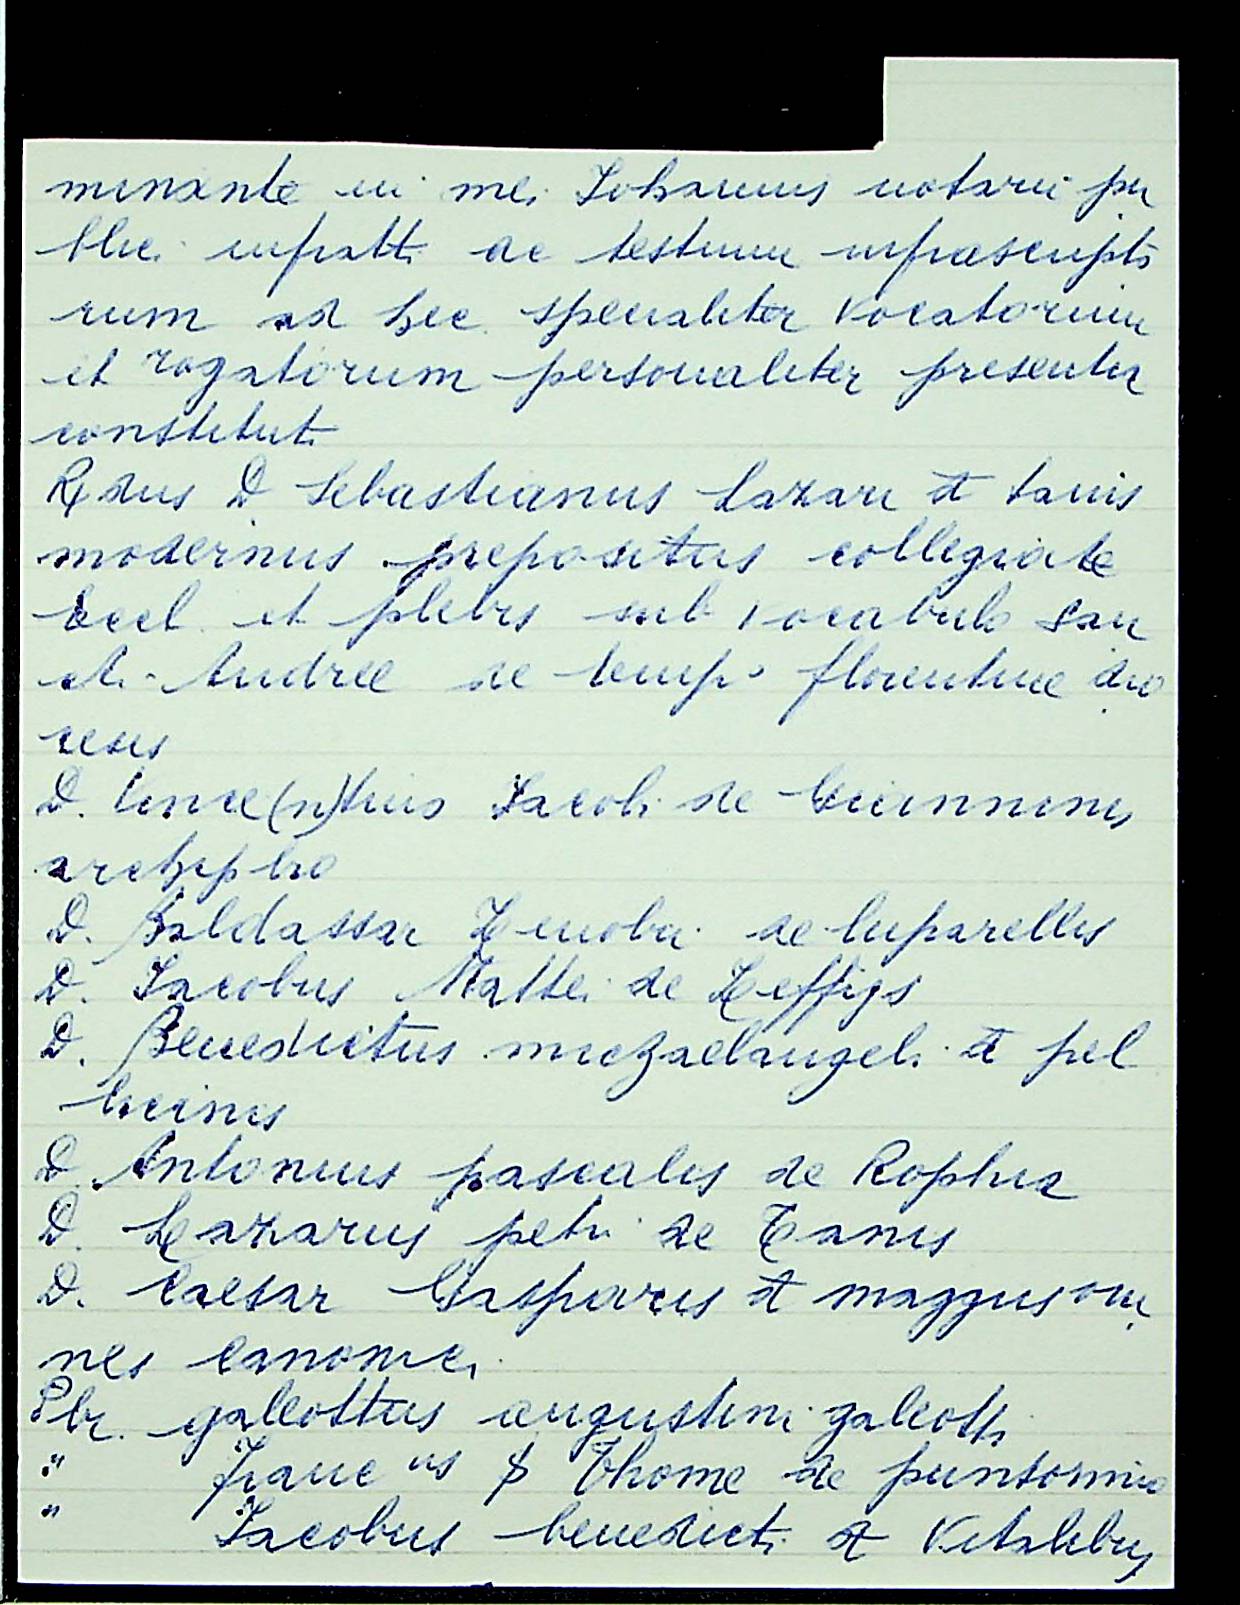 minante in mei Johannis notarii pu
blici infratti ac testium infrascripto
rum ad hec specialiter vocatorum
et rogatorum personaliter presentia
constituti
Rdus D Sebastianus Lazari de Tanis
modernus prepositus collegiate
Eccl. et plebis sub vocabulo San
cti Andree de Florentine dio
cesis
D. Vince(n)tius Jacobi de Gianninis
archipbro
D. Baldassar Zenobii de luparellis
D. Jacobus Mattei de Zeffiys
D. Benedictus michaelangeli de pel
D. Antonius pascalis de Rophia
D. Lazarus petri de Tanis
D. Caesar Gasparis de maggus om
nes Canonici
Pbr. galeottus augustini galeotti
" Franc us Thome de puntormio
" Jacobus benedicti de Vitalibus